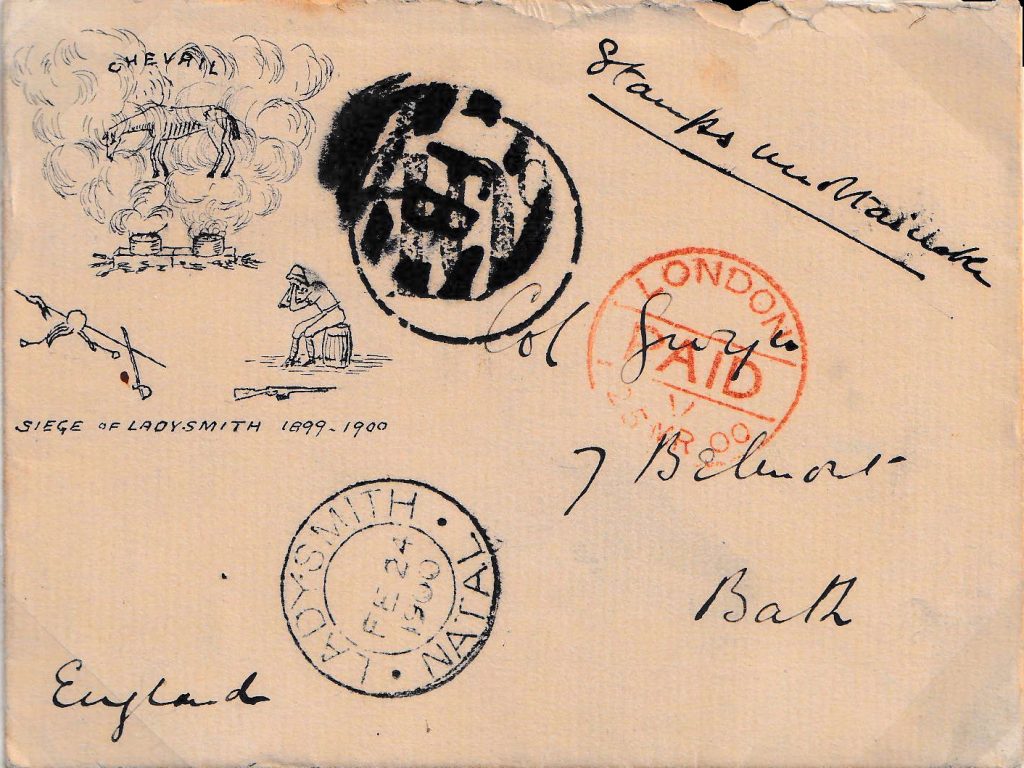 CHEVRIL
Stamps unobtainable
SIEGE OF LADYSMITH 1899-1900
LONDON
PAID
25 MR 00
Col
7 Belmont
Bath
England
LADYSMITH · NATAL ·
FE 24
1900